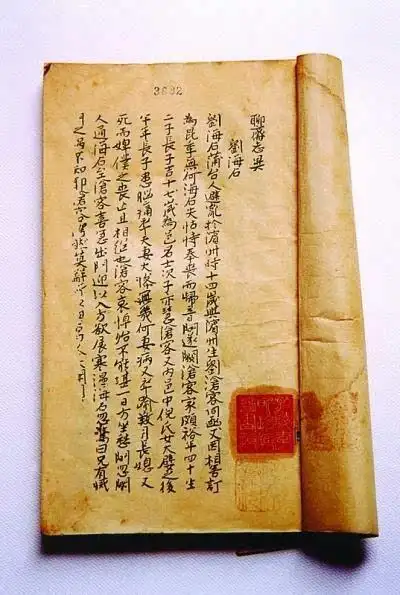 3682
聊齋志異
劉海石
劉海石蒲台人避亂於濱州時十四歲與濱州生劉滄客同函丈因相善訂
為昆季無何海石失怙恃奉喪而歸音問遂闕滄客家頗裕年四十生
二子長子吉十七歲為邑名士次子亦慧滄客又內邑中倪氏女大嬖之後
半年長子患腦痛卒夫妻大慘無幾何妻病又卒踰數月長媳又
死而婢僕之喪亡且相繼也滄客哀悼殆不能堪一日方坐愁間忽閽
人通海石至滄客喜急出門迎以入方欲展寒溫海石忽驚曰兄有滅
不知